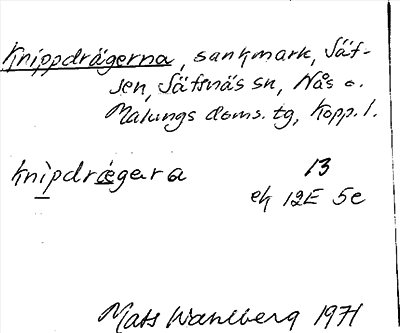 Knippdrägerna, sankmark, Säf-
sen, Säfsnäs sn, Nås o.
Malungs doms. tg, Kopp. l.
knipdrægara 13
ek 12E 5e
Mats Wahlberg 1971